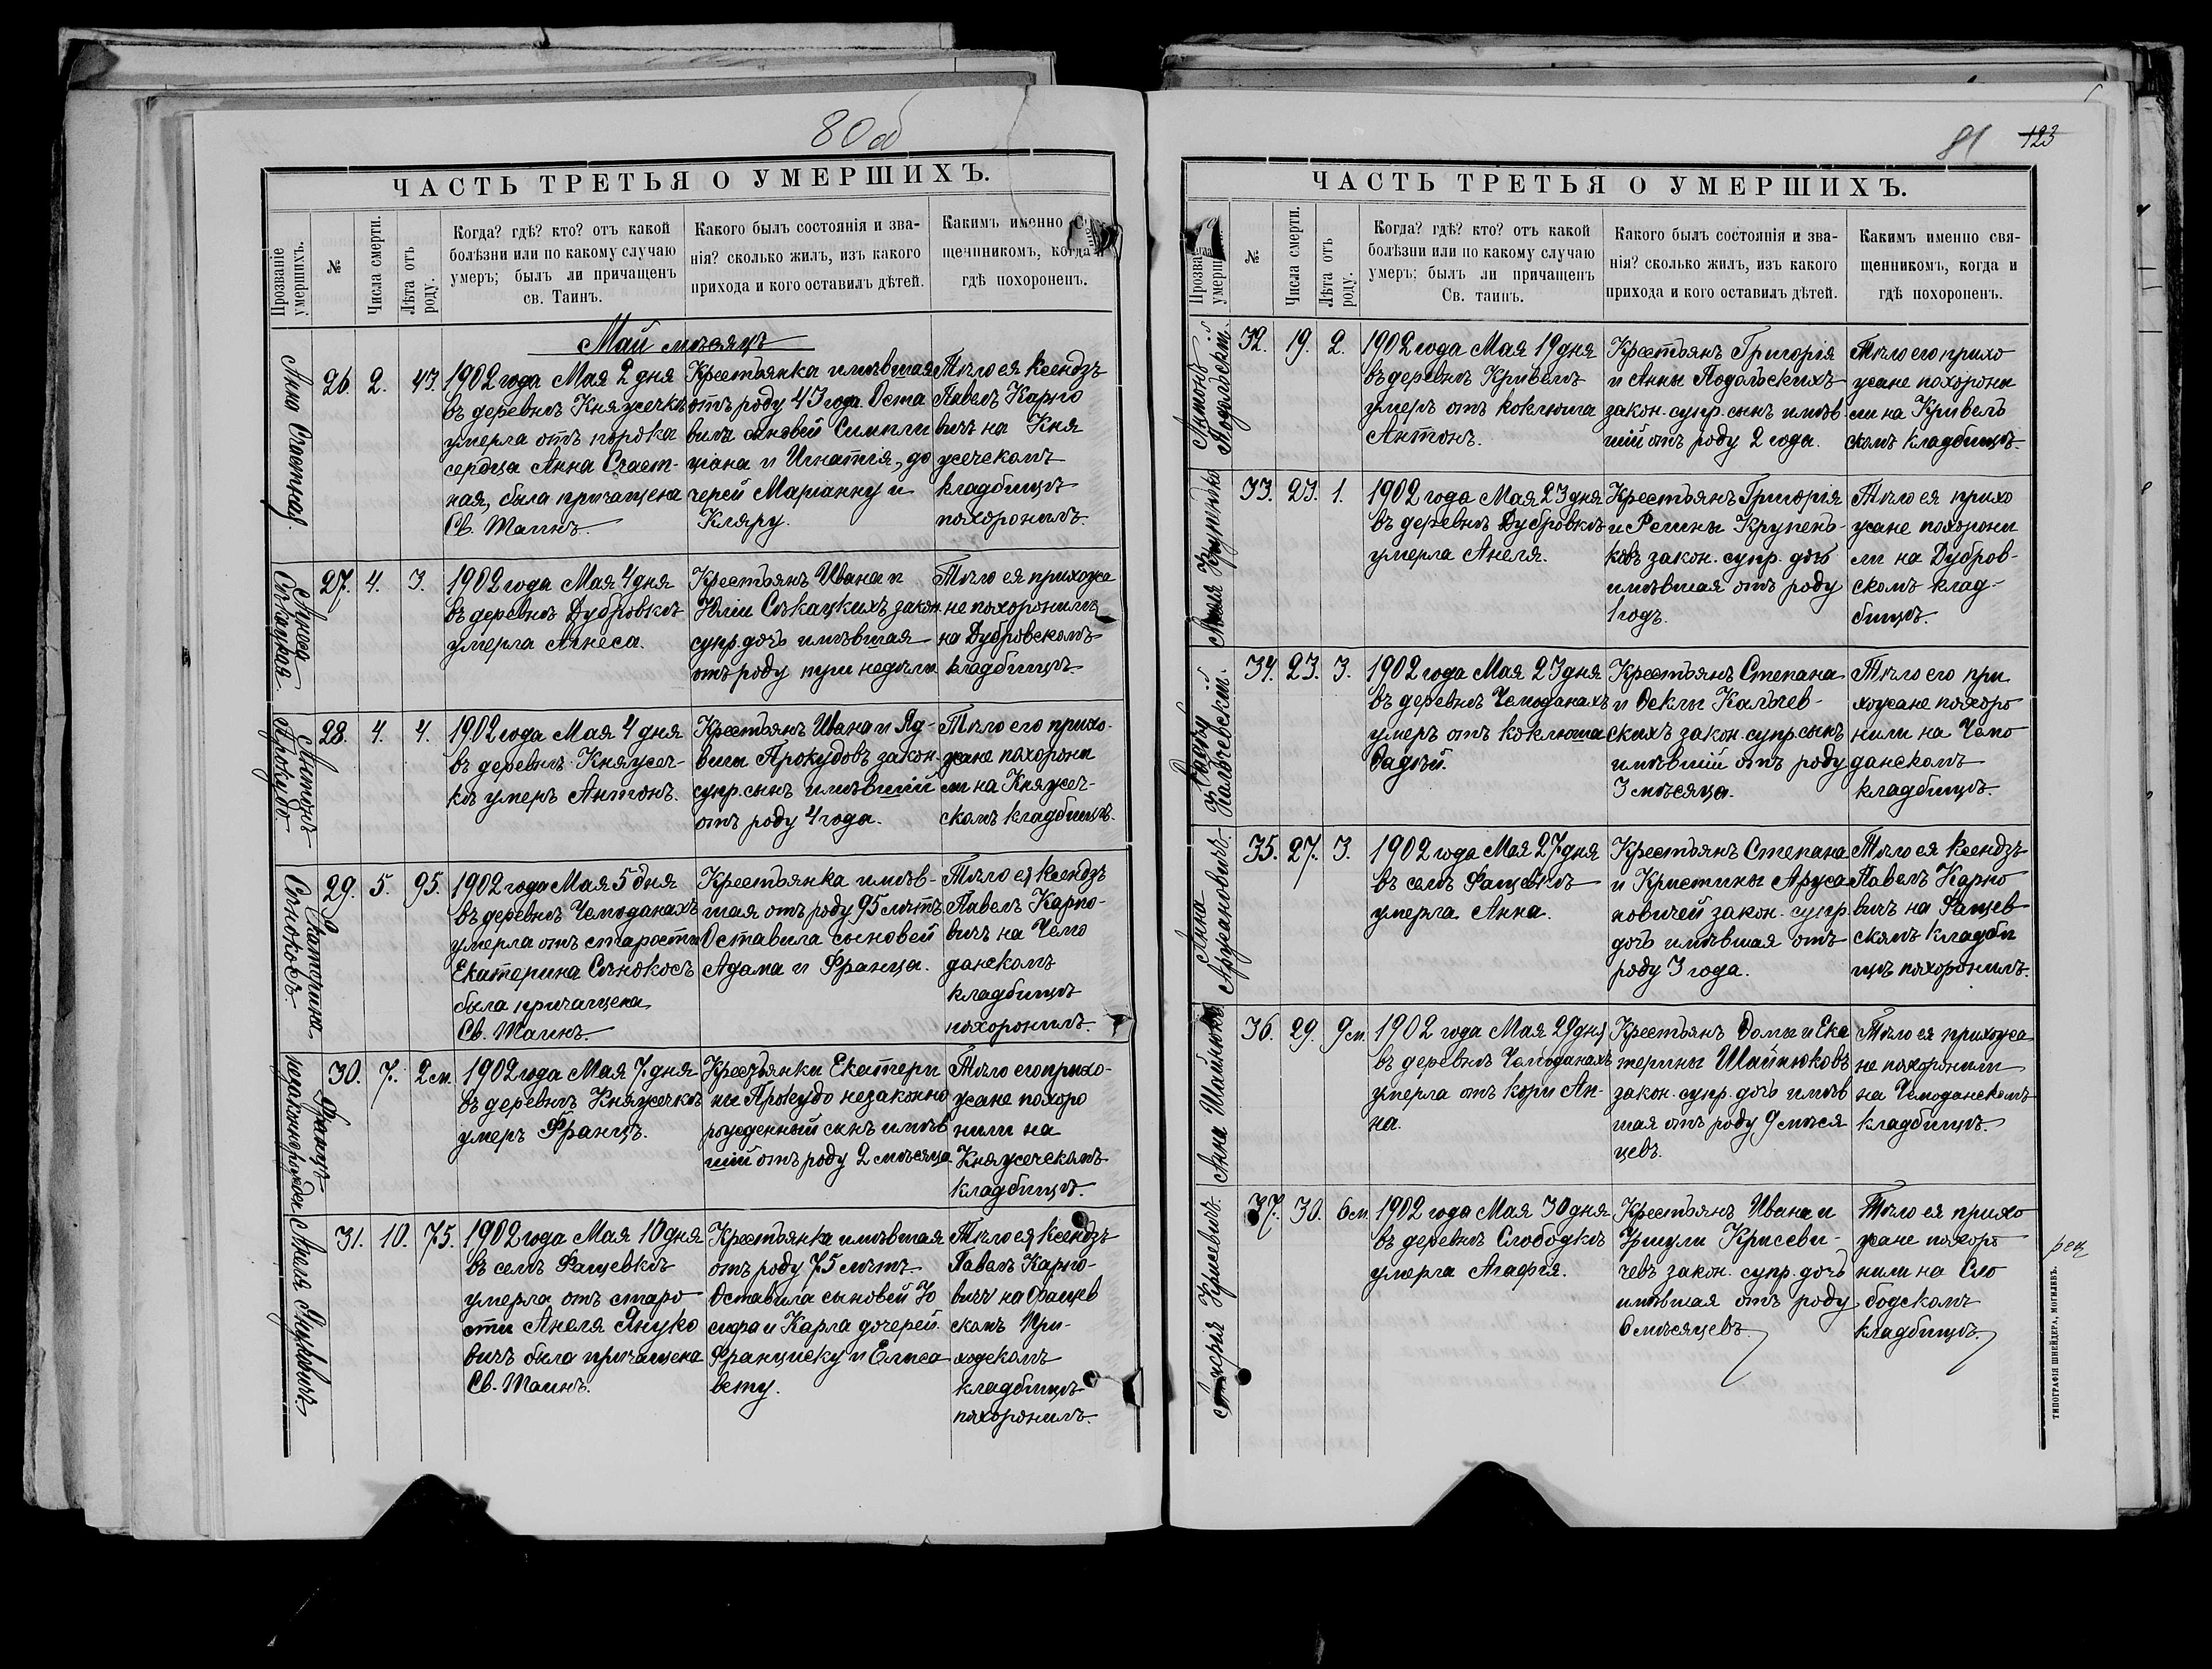 80 об
ЧАСТЬ ТРЕТЬЯ О УМЕРШИХЪ.
Прозваніе умершихъ.
№
Числа смерти.
Лѣта отъ роду.
Когда? гдѣ? кто? отъ какой
болѣзни или по какому случаю
умеръ; былъ ли причащенъ
св. Таинъ.
Какого былъ состоянія и зва-
нія? сколько жилъ, изъ какого
прихода и кого оставилъ дѣтей.
Какимъ именно
щенникомъ, когда и
гдѣ похороненъ.
Май мѣсяцъ
Анна Счастная.
26. 2. 43.
1902 года Мая 2 дня
въ деревнѣ Княжечкѣ
умерла отъ порока
сердца Анна Счаст-
ная, была причащена
Св. Таинъ.
Крестьянка имѣвшая
отъ роду 43 года. Оста
вила сыновей Симпли
ціана и Игнатія, до
черей Маріанну и
Кляру.
Тѣло ея ксендзъ
Павелъ Карпо
вичъ на Кня
жечскомъ
кладбищѣ
похоронилъ.
Агнеса
Сѣкацкая.
27. 4. 3.
1902 года Мая 4 дня
въ деревнѣ Дубровкѣ
умерла Агнеса.
Крестьянъ Ивана и
Юліи Сѣкацкихъ закон.
супр. дочь имѣвшая
отъ роду три недѣли
Тѣло ея прихожа
не похоронилѣ
на Дубровскомъ
кладбищѣ.
Антонъ
Прокудо.
28. 4. 4.
1902 года Мая 4 дня
въ деревнѣ Княжеч-
кѣ умеръ Антонъ.
Крестьянъ Ивана и Яд-
виги Прокудовъ закон.
супр. сынъ имѣвшій
отъ роду 4 года.
Тѣло его прихо-
жане похорони
ли на Княжеч-
скомъ кладбищѣ.
Екатерина
Сѣнокосъ
29. 5. 95.
1902 года Мая 5 дня
въ деревнѣ Чемоданахъ
умерла отъ старости
Екатерина Сѣнокосъ
была причащена
Св. Таинъ.
Крестьянка имѣв-
шая отъ роду 95 лѣтъ
Оставила сыновей
Адама и Франца.
Тѣло ея ксендзъ
Павелъ Карпо-
вичъ на Чемо
данскомъ
кладбищѣ
похоронилъ.
Францъ
незаконнорожден.
30. 7. 2 м.
1902 года Мая 7 дня
въ деревнѣ Княжечкѣ
умеръ Францъ.
Крестьянки Екатери
ны Прокудо незаконно
рожденный сынъ имѣв
шій отъ роду 2 мѣсяца
Тѣло его прихо-
жане похоро
нили на
Княжечскомъ
кладбищѣ.
Анеля Януковичъ.
31. 10. 75.
1902 года Мая 10 дня
въ селѣ Фащевкѣ
умерла отъ старо
сти Анеля Януко
вичъ была причащена
Св. Таинъ.
Крестьянка имѣвшая
отъ роду 75 лѣтъ
Оставила сыновей Іо
сифа и Карла дочерей
Франциску и Елиса
вету.
Тѣло ея ксендзъ
Павелъ Карпо-
вичъ на Фащев
скомъ При-
ходскомъ
кладбищѣ
похоронилъ.
81 123
ЧАСТЬ ТРЕТЬЯ О УМЕРШИХЪ.
№
Числа смерти.
Лѣта отъ роду.
Когда? гдѣ? кто? отъ какой
болѣзни или по какому случаю
умеръ; былъ ли причащенъ
Св. таинъ.
Какого былъ состоянія и зва-
нія? сколько жилъ, изъ какого
прихода и кого оставилъ дѣтей.
Какимъ именно свя-
щенникомъ, когда и
гдѣ похороненъ.
Антонъ
Подольскій.
32. 19. 2.
1902 года Мая 19 дня
въ деревнѣ Кривелѣ
умеръ отъ коклюша
Антонъ.
Крестьянъ Григорія
и Анны Подольскихъ
закон. супр. сынъ имѣв
шій отъ роду 2 года.
Тѣло его прихо
жане похорони
ли на Кривель
скомъ кладбищѣ.
Анеля Крупенько
33. 23. 1.
1902 года Мая 23 дня
въ деревнѣ Дубровкѣ
умерла Анеля.
Крестьянъ Григорія
и Регины Крупень-
ковъ закон. супр. дочь
имѣвшая отъ роду
1 годъ.
Тѣло ея прихо
жане похорони
ли на Дубров-
скомъ клад-
бищѣ.
Кальчевскій.
34. 23. 3.
1902 года Мая 23 дня
въ деревнѣ Чемоданахъ
умеръ отъ коклюша
Фадѣй.
Крестьянъ Степана
и Феклы Кальчев-
скихъ закон. супр. сынъ
имѣвшій отъ роду
3 мѣсяца.
Тѣло его при
хожане похоро
нили на Чемо
данскомъ
кладбищѣ.
Анна
Аружановичъ.
35. 27. 3.
1902 года Мая 27 дня
въ селѣ Фащевкѣ
умерла Анна.
Крестьянъ Степана
и Кристины Аружа
новичей закон. супр.
дочь имѣвшая отъ
роду 3 года.
Тѣло ея ксендзъ
Павелъ Карпо
вичъ на Фащев
скомъ кладби
щѣ похоронилъ.
Анна Шайнюкъ
36. 29. 9 м.
1902 года Мая 29 дня
въ деревнѣ Чемоданахъ
умерла отъ кори Ан-
на.
Крестьянъ Фомы и Ека
терины Шайнюковъ
закон. супр. дочь имѣв
шая отъ роду 9 мѣся
цевъ.
Тѣло ея прихожа
не похоронили
на Чемоданскомъ
кладбищѣ.
Агафія Крисевичъ.
37. 30. 6 м.
1902 года Мая 30 дня
въ деревнѣ Слободкѣ
умерла Агафія.
Крестьянъ Ивана и
Уршули Крисеви-
чевъ закон. супр. дочь
имѣвшая отъ роду
6 мѣсяцевъ.
Тѣло ея прихо
жане похоро
нили на Сло
бодскомъ
кладбищѣ.
ТИПОГРАФІЯ ШНЕЙДЕРА, МОГИЛЕВЪ.